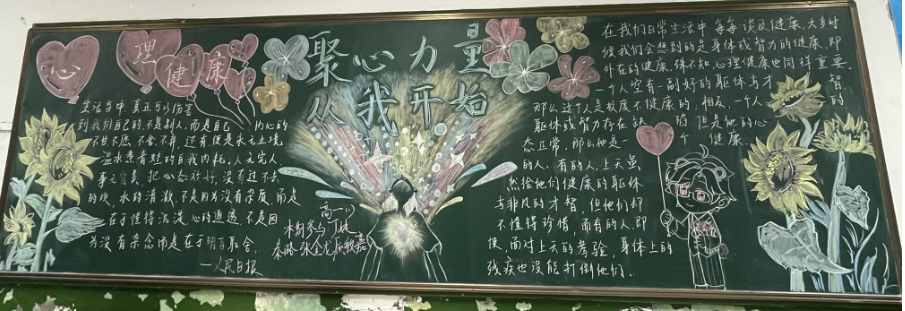 心理健康
聚心力量
从我开始
生活当中,真正可以伤害
到我们自己的,不是别人,而是自己内心的
事事完美,把心态放好,没有过不去
的坎,水的清澈,不是因为没有杂质,而是
在于懂得沉淀,心的通透,不是因
为没有杂念而是在于明白取舍.
—人民日报
高一
本期参与
在我们日常生活中,每每谈及健康,大多时
候我们会想到的是身体或智力的健康,即
外在的健康,殊不知,心理健康也同样重要,
一个人空有一副好的躯体与才智
那么这个人是极度不健康的,相反,一个人的
躯体或智力存在缺陷,但是他的心
态正常,那么他是一个健康
的人,有的人,上天虽
然给他们健康的躯体
与非凡的才智,但他们却
不懂得珍惜,而有的人,即
使面对上天的考验,身体上的
残疾也没能打倒他们.